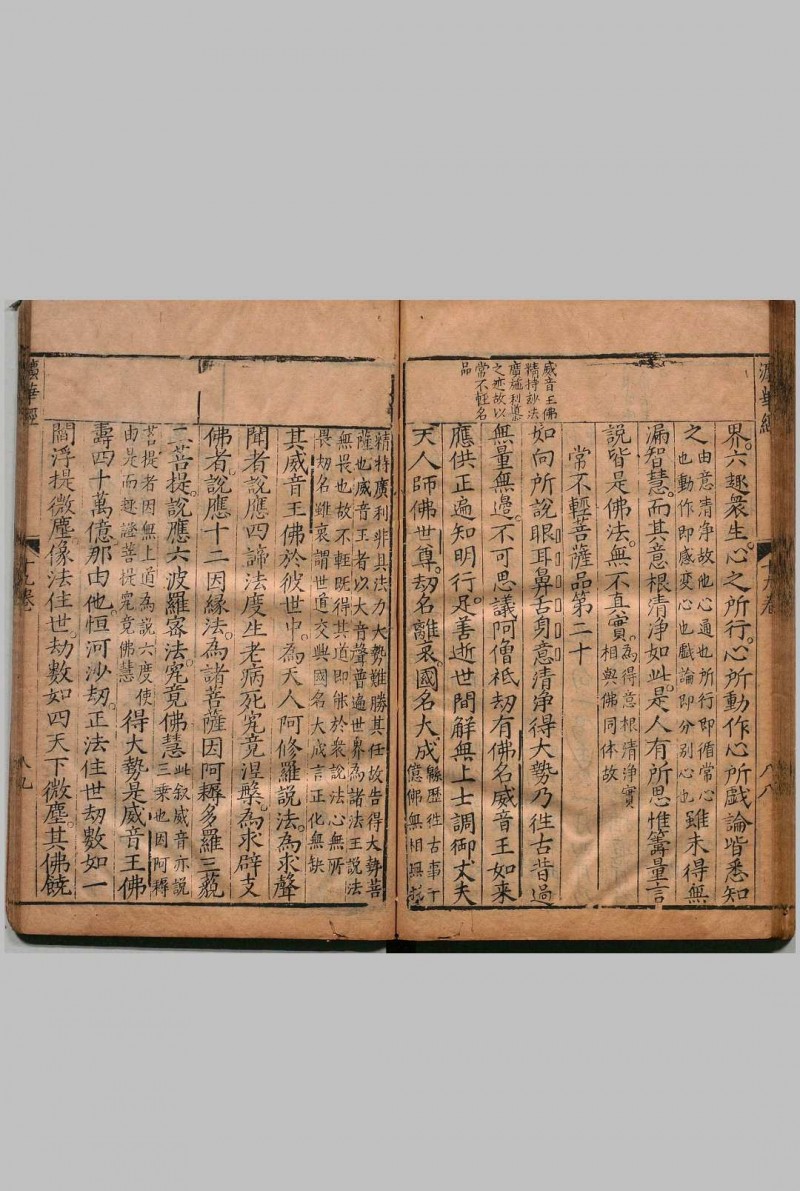 界。六趣衆生。心之所行。心所動作。心所戲論。皆悉知
之 由意清净故他心通也所行即循常心
也動作即感变心也戲論即分别心也 雖未得無
漏智慧。而其意根清净如此。是人有所思惟籌量言
說皆是佛法。無不真實。 為得意根清净實
相與佛同体故
常不輕菩薩品第二十
威音王佛
精持妙法
廣施利慧
之迹故以
常不軽名
品
如向所說眼耳鼻舌身意清净得大勢乃徃古昔過
無量無邊。不可思議阿僧祗劫有佛名威音王如来
應供正遍知明行足善逝世間解無上士調御丈夫
天人師佛世尊。劫名離衰。國名大成 緜歴徃古事
佛無相
精持廣利非具法力大勢難勝其任故告得大勢菩
薩也威音王者以大音聲普遍世界為諸法王説法
無畏也故不軽既得其道即能於衆說法心無所
畏劫名離衰謂世道交興國名大成言正化無缺
其威音王佛於彼世中。為天人阿修羅説法。為求聲
聞者説應四諦法度生老病死究竟涅槃。為求辟支
佛者。說應十二因緣法。為諸菩薩因阿耨多羅三藐
三菩提。說應六波羅宻法。究竟佛慧 此叙威音亦説
三乗也因阿耨
菩提者因無上道為説六度使
由是而趣證菩提究竟佛慧 得大勢是威音王佛
壽四十萬億那由他。恒河沙劫。正法住世劫數如一
閻浮提微塵。像法住世。劫數如四天下微塵。其佛饒
法華經
十九卷
八八
法華經
十九卷
八九